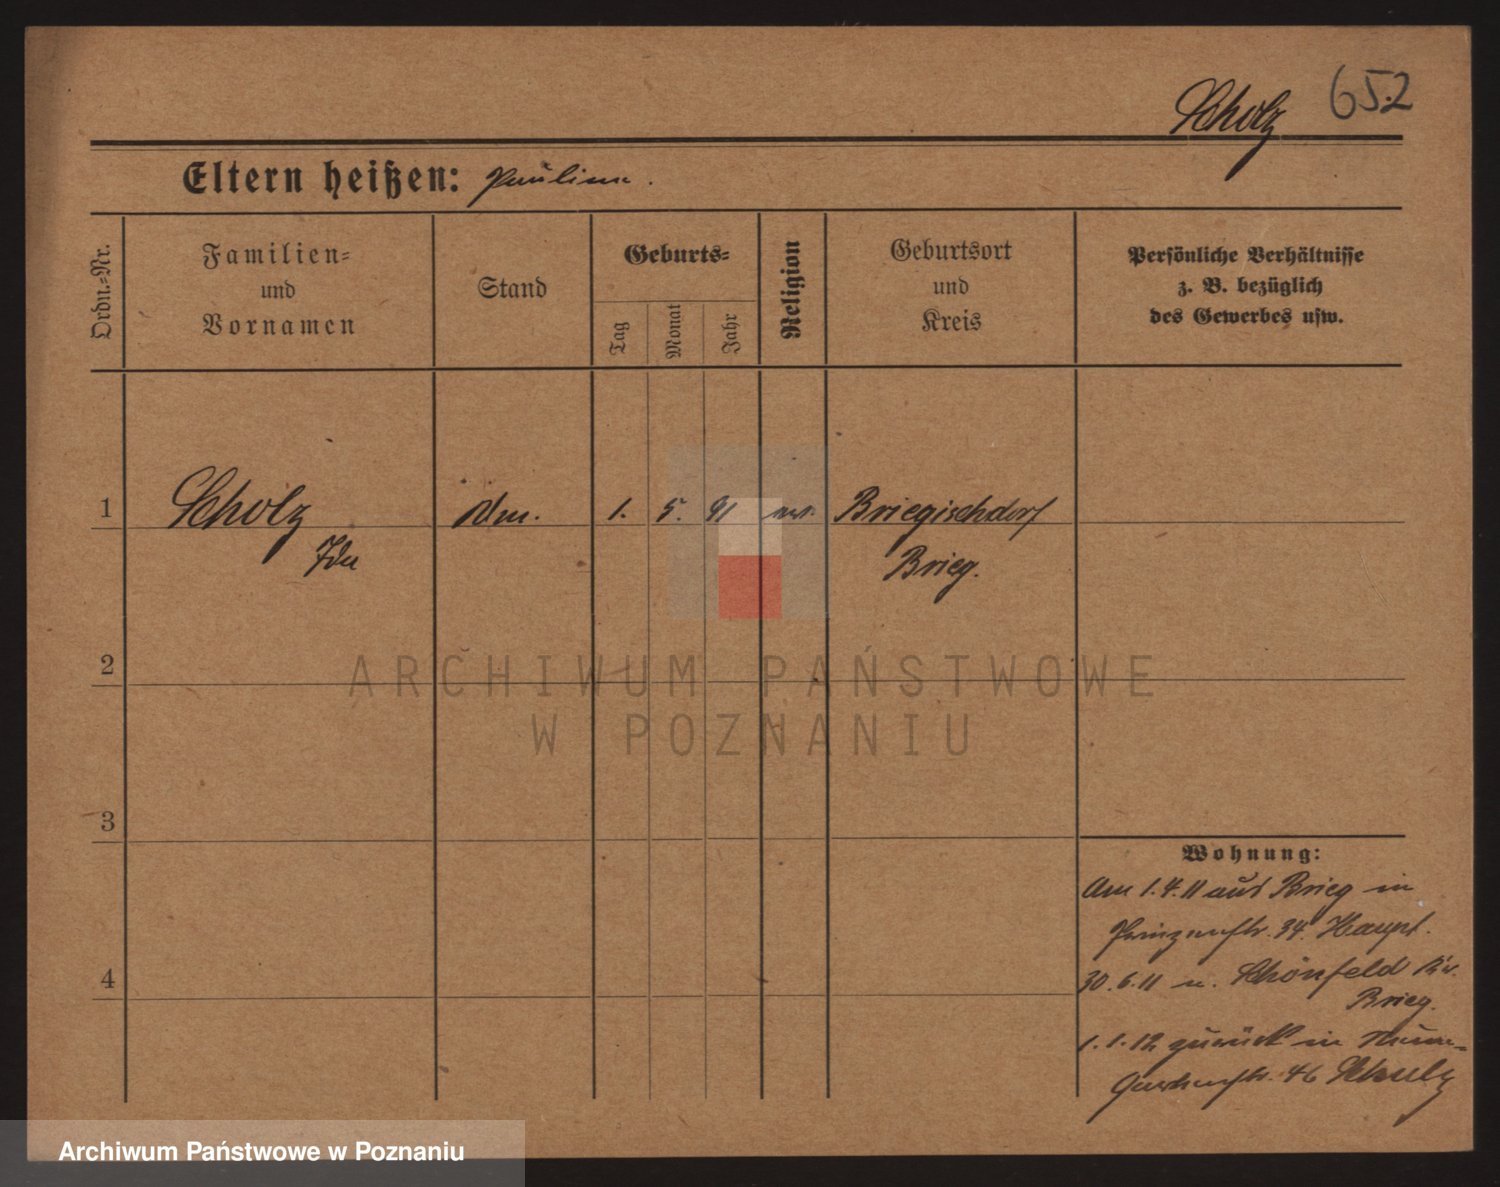 Scholz 652
Eltern heißen: Pauline.
Ordn.-Nr.
Familien-
und
Vornamen
Stand
Geburts-
Tag
Monat
Jahr
Religion
Geburtsort
und
Kreis
Persönliche Verhältnisse
z. B. bezüglich
des Gewerbes usw.
1 Scholz 1. 5. 91 Briegischdorf
Ida Brieg.
2
3
4
Wohnung:
Am 1.4.11 aus Brieg in
Prinzenstr. 34. Haupt.
30.6.11 n. Schönfeld Kr.
Brieg.
1.1.12 zurück in
46 Schulz
ARCHIWUM PAŃSTWOWE
W POZNANIU
Archiwum Państwowe w Poznaniu